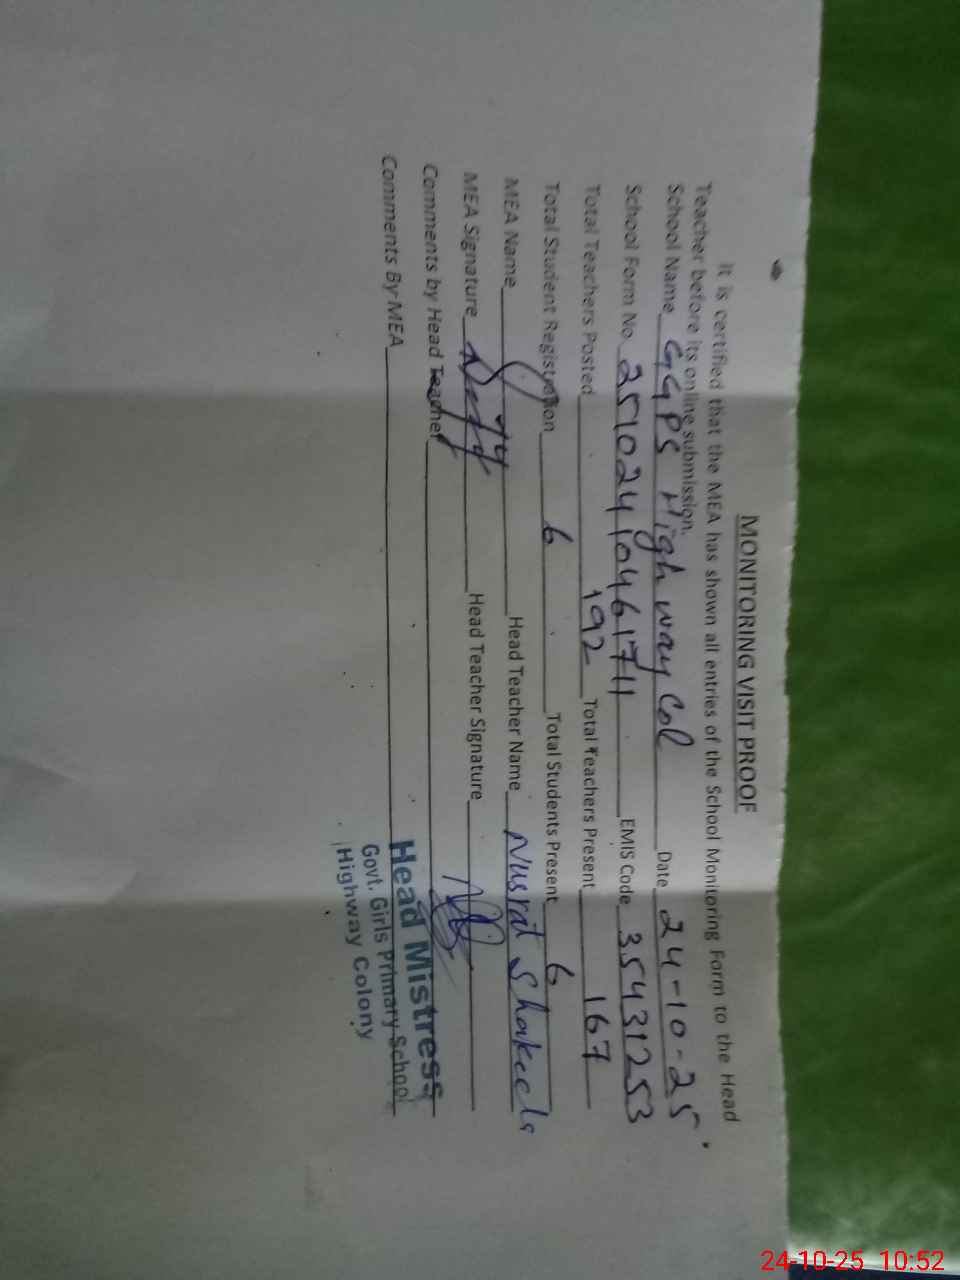 MONITORING VISIT PROOF
It is certified that the MEA has shown all entries of the School Monitoring Form to the Head
Teacher before its online submission.
School Name GGPS High way Col Date 24-10-25
School Form No 251024104617411 EMIS Code 35431253
Total Teachers Posted 192 Total Teachers Present 167
Total Student Registration 6 Total Students Present 6
MEA Name Head Teacher Name Nusrat Shakeela
MEA Signature Head Teacher Signature
Comments by Head Teacher
Comments By MEA
Head Mistress
Govt. Girls Primary School
Highway Colony
24-10-25 10:52